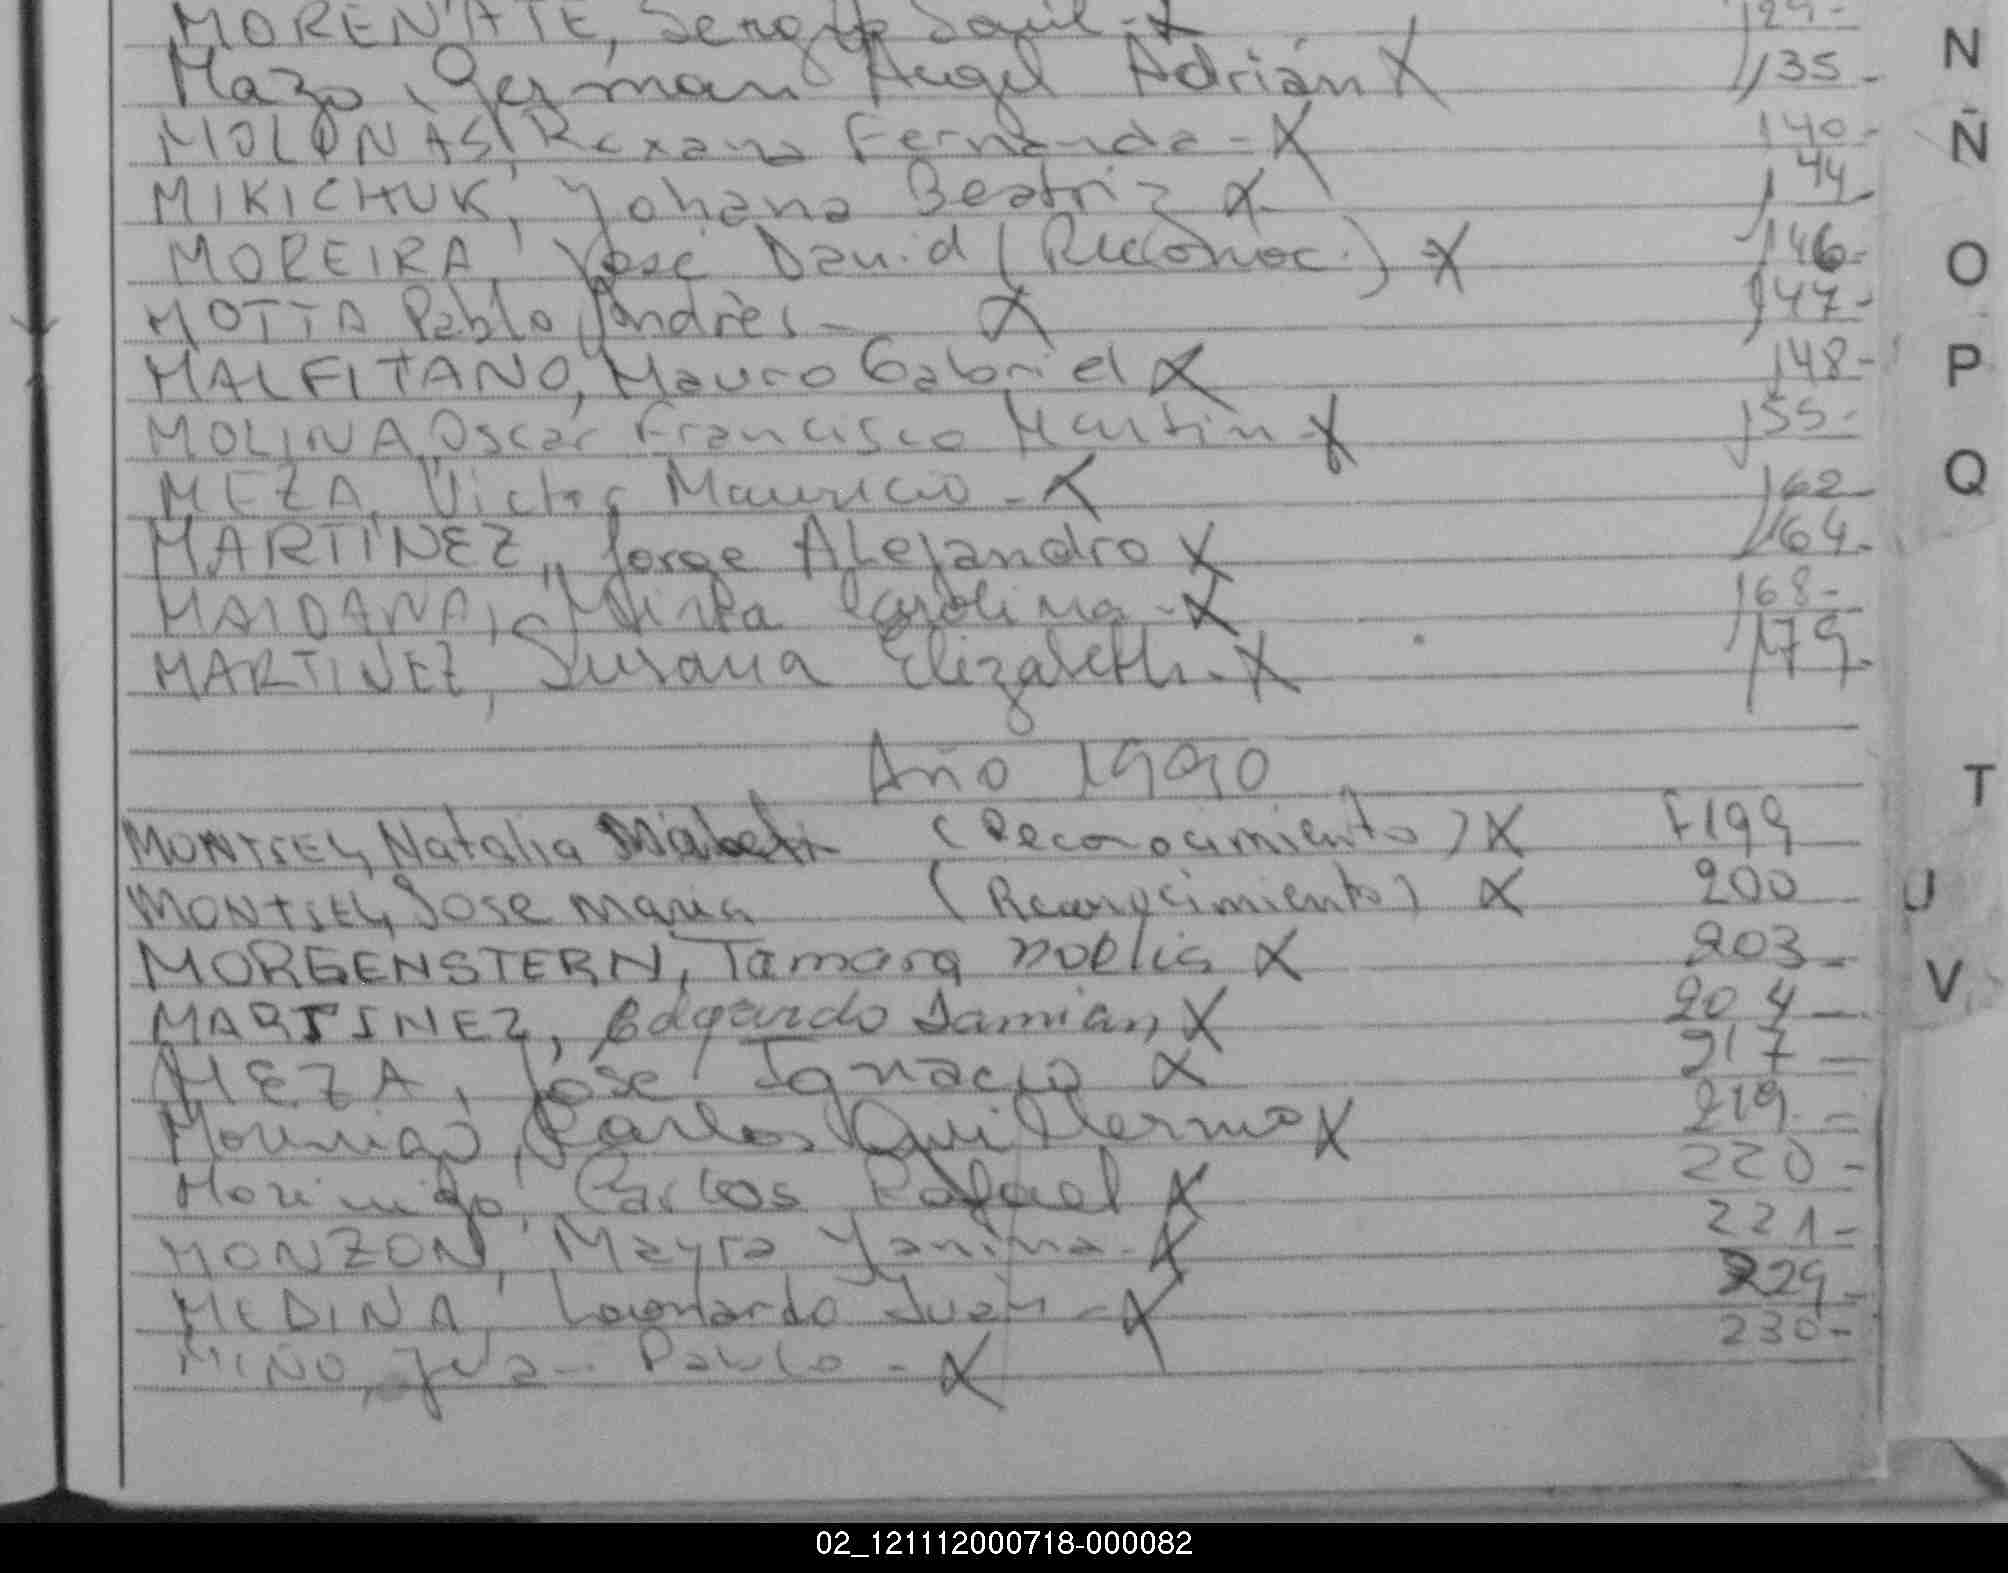 MORENATE, Sergio Saul - X 129-
Mazo, Germán Angel Adrián X 135-
MOLONAS, Roxana Fernanda - X 140-
MIKICHUK, Yohana Beatriz X 144
MOREIRA, José David (Reconoc.) X 146-
MOTTA Pablo Andrès - X 147-
MALFITANO, Mauro Gabriel X 148-
MOLINA, Oscar Francisco Martin X 155-
MEZA, Victor Mauricio - X 162-
MARTINEZ, Jorge Alejandro X 164-
MAIDANA, Mirta Carolina - X 168-
MARTINEZ, Susana Elizabeth - X 179
Año 1990
MONTIEL, Natalia (Reconocimiento) X F199
MONTIEL, Jose maria (Reconocimiento) X 200
MORGENSTERN, Tamara noelia X 203-
MARTINEZ, Edgardo Damian, X 204-
MEZA, José Ignacio X 217-
Morinigo, Carlos Guillermo X 219-
Morinigo, Carlos Rafael X 220-
MONZON, Mayra Yanina - X 221-
MEDINA, Leonardo Juan - X 229-
MIÑO, Juan Pablo - X 230-
N
Ñ
O
P
Q
T
U
V
02_121112000718-000082